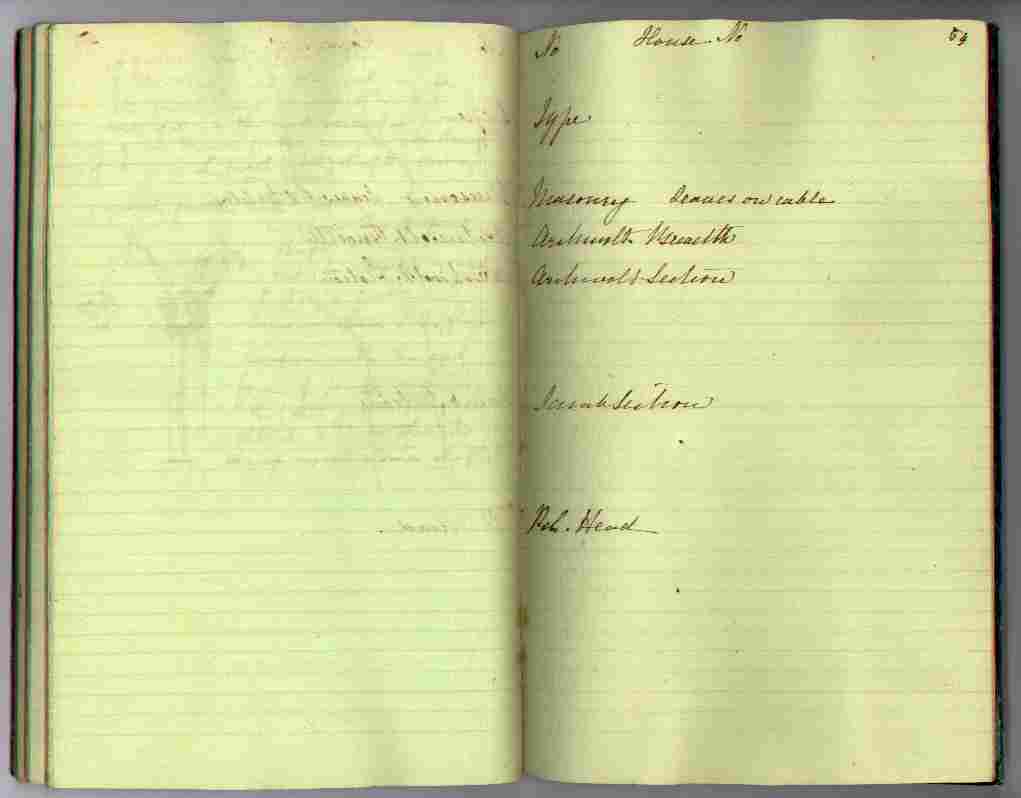 No House. No 64
Type
Masonry Leaves on cable
Archivolt Breadth
Archivolt Section
Jamb Section
Reh. Head